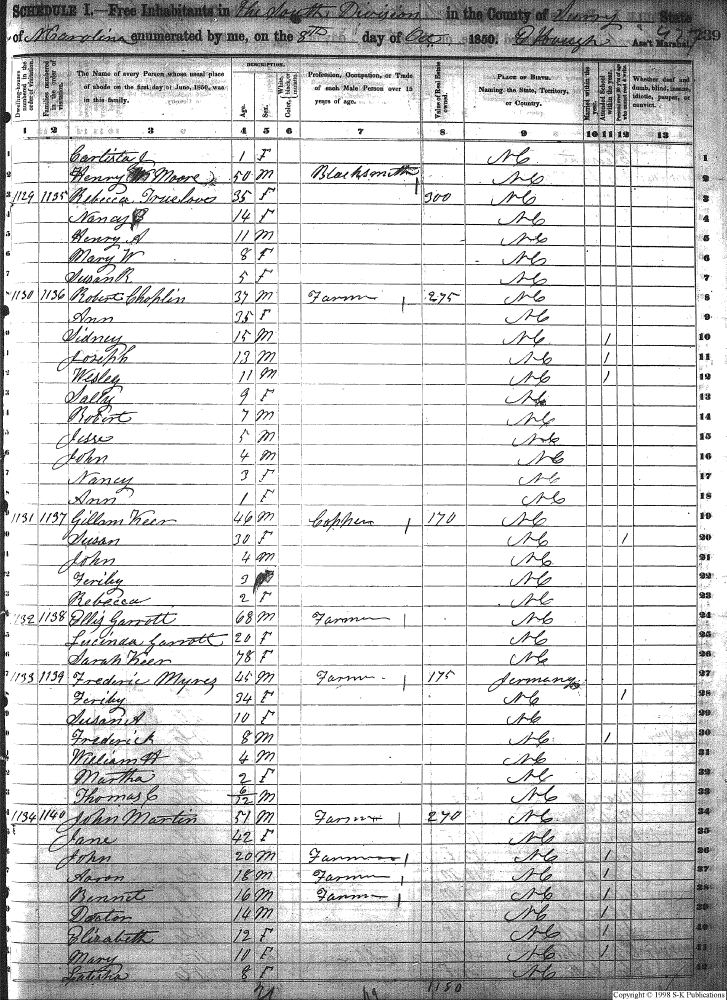 SCHEDULE I.—Free Inhabitants in The South Division in the County of Surry State
of N Carolina enumerated by me, on the 8th day of Oct 1850. Ass't Marshal. 239
DESCRIPTION.
Dwelling-houses numbered in the order of visitation.
Families numbered in the order of visitation.
The Name of every Person whose usual place of abode on the first day of June, 1850, was in this family.
Age.
Sex.
Color, White, black, or mulatto.
Profession, Occupation, or Trade of each Male Person over 15 years of age.
Value of Real Estate owned.
PLACE OF BIRTH. Naming the State, Territory, or Country.
Married within the year.
Attended School within the year.
Whether deaf and dumb, blind, insane, idiotic, pauper, or convict.
1 2 3 4 5 6 7 8 9 10 11 12 13
1 1 F NC
2 Henry Moore 50 M Blacksmith NC
3 1129 1135 Rebecca Truelove 35 F 300 NC
4 Nancy 14 F NC
5 Henry A 11 M NC
6 Mary W 8 F NC
7 Susan R 5 F NC
8 1130 1136 Robert Choplin 37 M Farmer 275 NC
9 Ann 35 F NC
10 Sidney 15 M NC
11 Joseph 13 M NC
12 Wesley 11 M NC
13 Sally 9 F NC
14 Robert 7 M NC
15 Jesse 5 M NC
16 John 4 M NC
17 Nancy 3 F NC
18 Ann 1 F NC
19 1131 1137 Gillam Keer 46 M 170 NC
20 Susan 30 F NC
21 John 4 M NC
22 Feriby 3 NC
23 Rebecca 2 F NC
24 1132 1138 Ellis Garrott 68 M Farmer NC
25 Lucinda Garrott 20 F NC
26 Sarah Keer 78 F NC
27 1133 1139 Frederic Myres 45 M Farmer 175 Germany
28 Feriby 34 F NC
29 Susan A 10 F NC
30 Frederick 8 M NC
31 William H 4 M NC
32 Martha 2 F NC
33 Thomas C 6/12 M NC
34 1134 1140 John Martin 51 M Farmer 270 NC
35 Jane 42 F NC
36 John 20 M Farmer NC
37 Aaron 18 M Farmer NC
38 Bennet 16 M Farmer NC
39 Doctor 14 M NC
40 Elizabeth 12 F NC
41 Mary 10 F NC
42 Latisha 8 F NC
1180
Copyright © 1998 S-K Publications